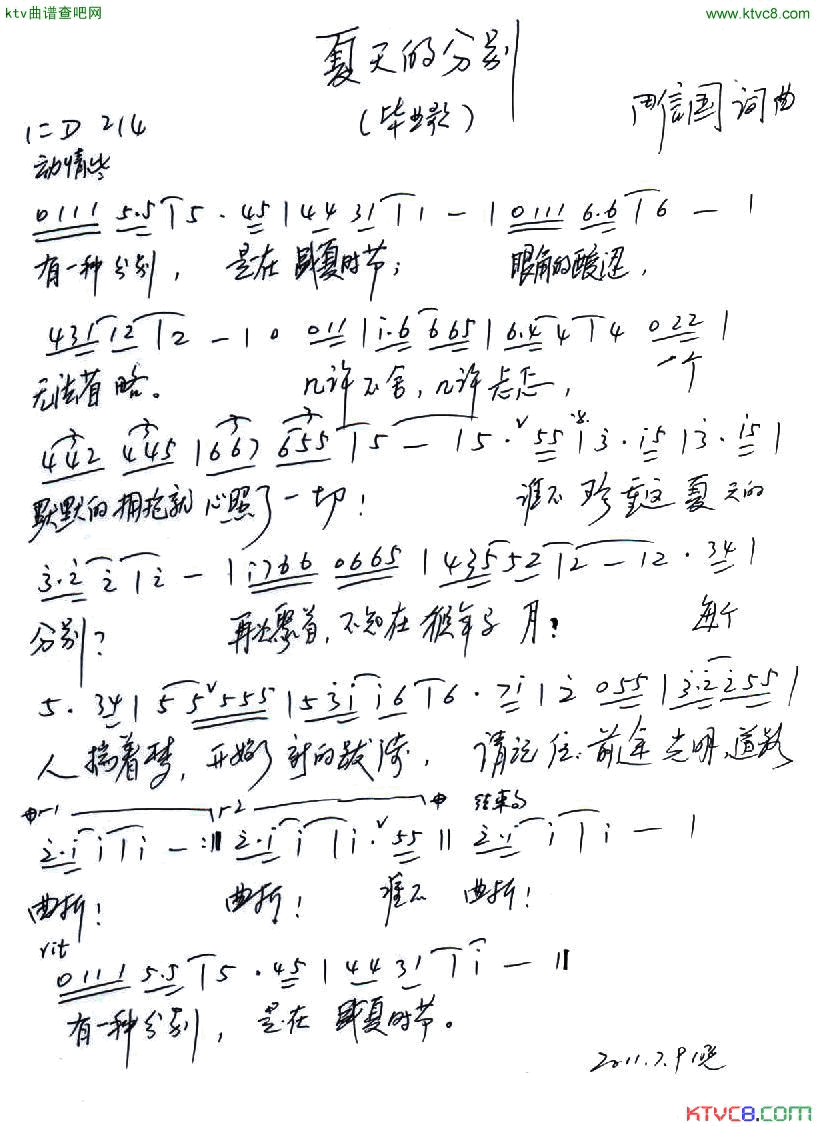 ktv曲谱查吧网 www.ktvc8.com
夏天的分别
(毕业歌)
信国 词曲
1=D 2/4
动情地
0111 5.5 | 5 . 45 | 44 31 | 1 — | 0111 6.6 | 6 — |
有一种分别， 是在盛夏时节； 眼角的酸涩，
431 12 | 2 — | 0 011 | i.6 665 | 6.4 4 | 4 022 |
无法省略。 几许不舍，几许忐忑， 一个
442 445 | 667 655 | 5 — | 5 . 55 | 3 . i5 | 3 . i5 |
默默的拥抱就心照了一切！ 谁不珍重这夏天的
3.2 2 | 2 — | i766 0665 | 435 52 | 2 — | 2 . 34 |
分别？ 再次聚首，不知在猴年马月？ 每个
5 . 34 | 5 5 555 | 53i i6 | 6 . 7i | 2 055 | 3.2 255 |
人揣着梦，开始了新的跋涉， 请记住：前途光明、道路
1 2 结束句
2.i i | i — :‖ 2.i i | i . 55 ‖ 2.i i | i — |
曲折！ 曲折！ 谁不 曲折！
rit
0111 5.5 | 5 . 45 | 44 31 | i — ‖
有一种分别， 是在盛夏时节。
2011.7.9晚
KTVC8.COM